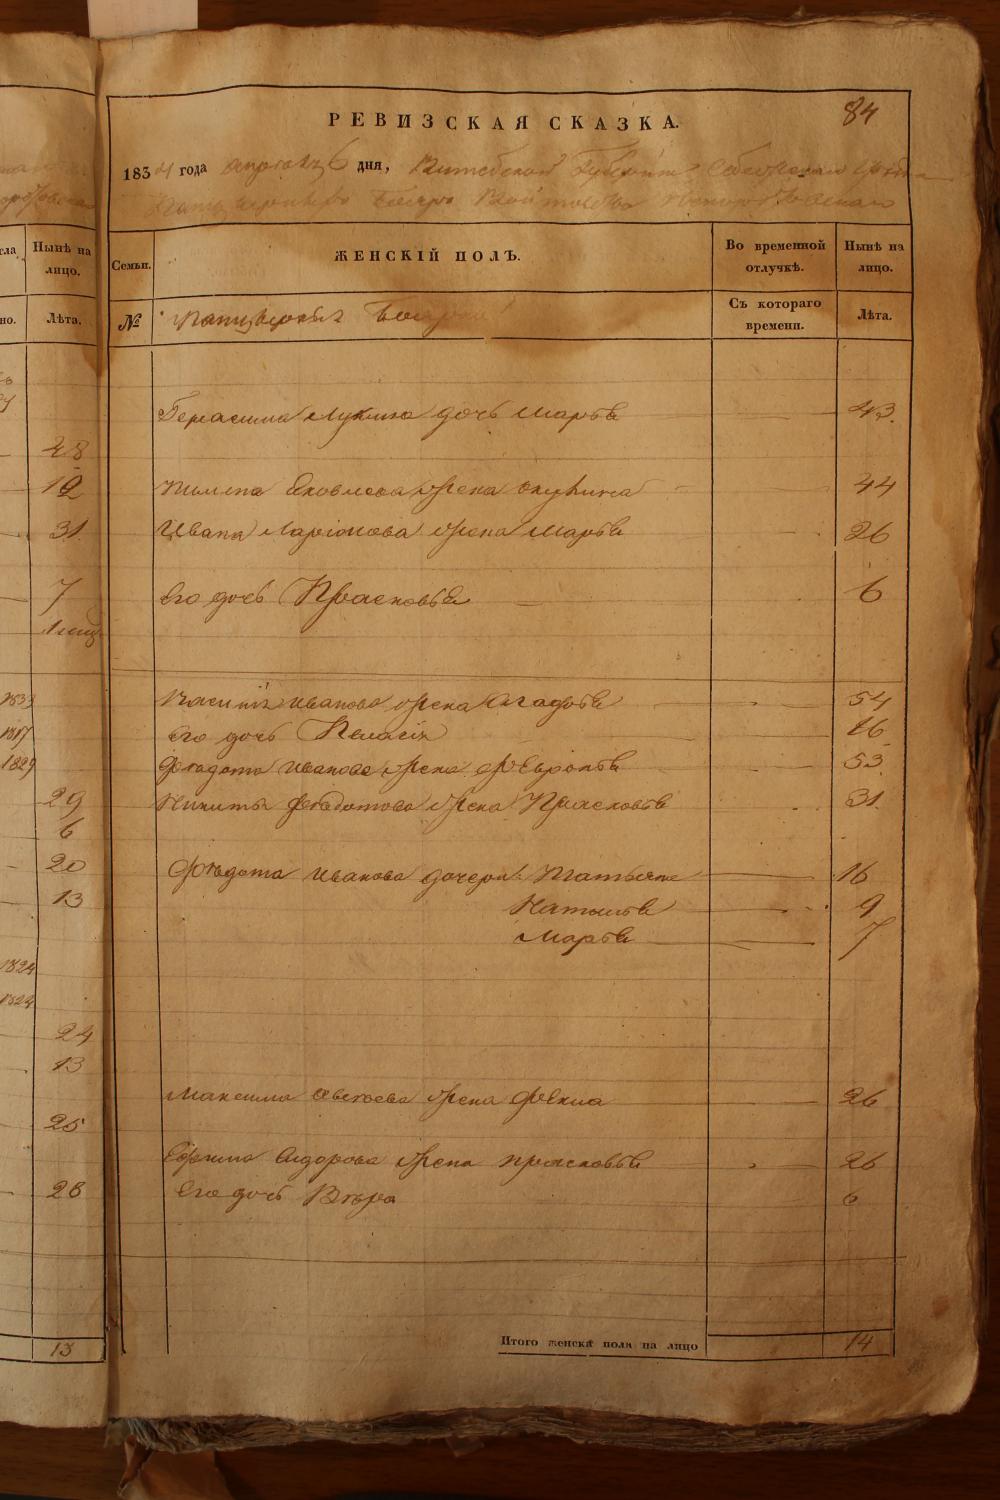 84
РЕВИЗСКАЯ СКАЗКА.
1834 года апреля 6 дня, Витебской Губернии Себежскаго
Семьи. ЖЕНСКІЙ ПОЛЪ. Во временной отлучкѣ. Нынѣ на лицо.
№ Панцырныхъ Бояръ Съ котораго времени. Лѣта.
Герасима Лукина дочь Марья 43.
Пимена Яковлева жена 44
Ивана Ларіонова жена Марья 26
Его дочь Прасковья 6
Василія Иванова жена Агафья 54
Его дочь Пелагія 16
Федота Иванова жена Февронья 53
Никиты Федотова жена Прасковья 31
Федота Иванова дочери: Татьяна 16
Наталья 9
Марья 7
Максима жена Фекла 26
Ефима Сидорова жена Прасковья 26
Его дочь Вѣра 6
Итого женска пола на лицо 14
Нынѣ на лицо.
Лѣта.
28
12
31
7
1833
1817
1829
29
6
20
13
1824
1824
24
13
25
28
13